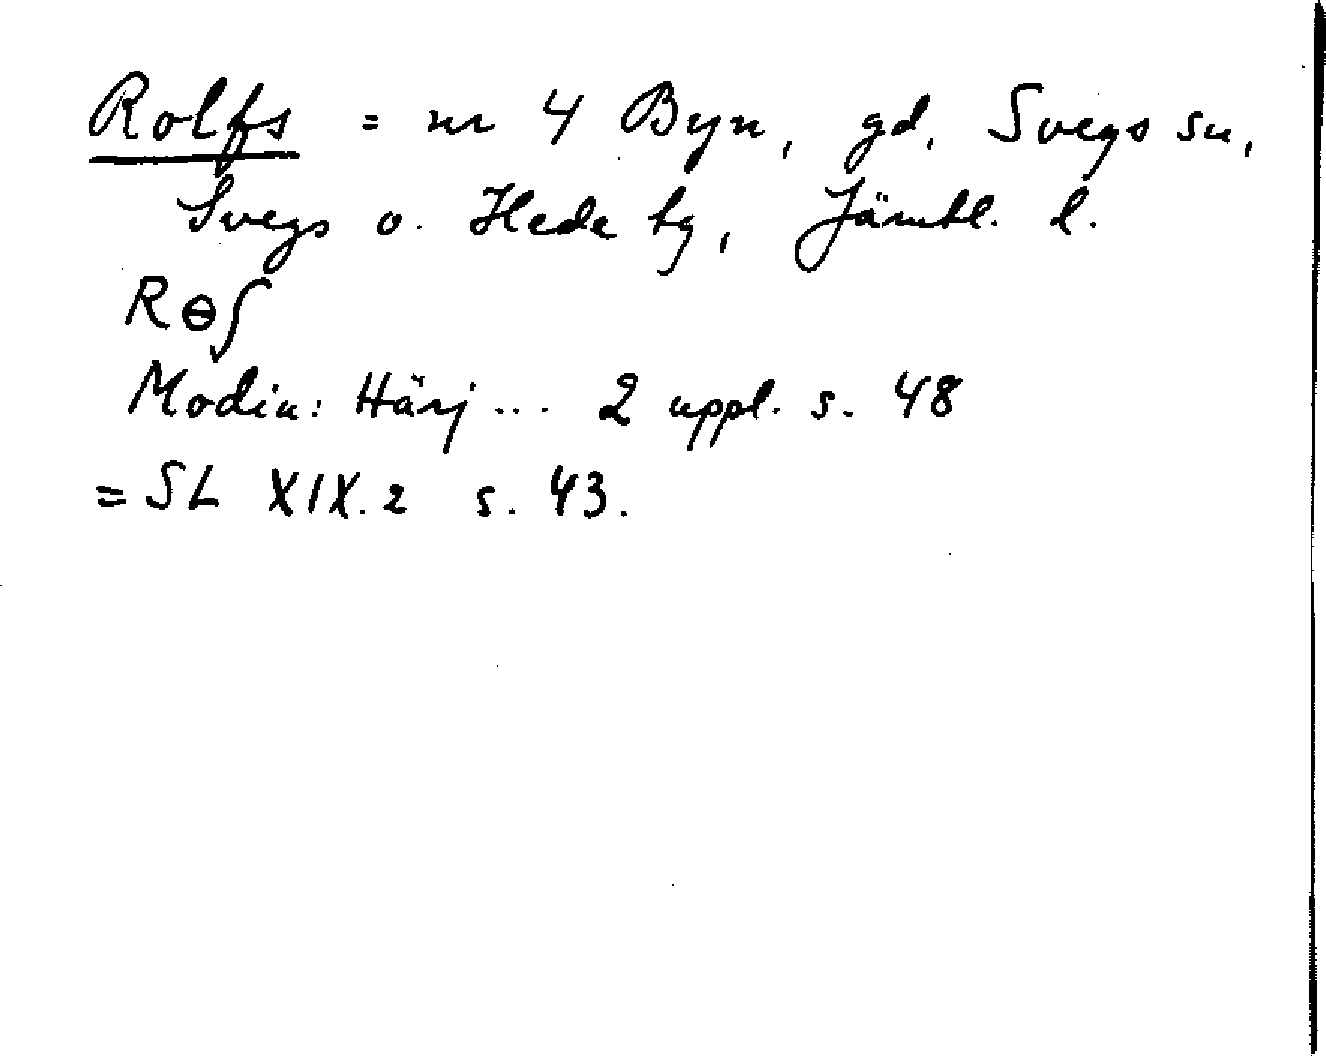 Rolfs = nr 4 Byn, gd, Svegs sn,
Svegs o. Hede tg, Jämtl. l.
Rɵʃ
Modin: Härj... 2 uppl. s. 48
= SL XIX.2 s. 43.